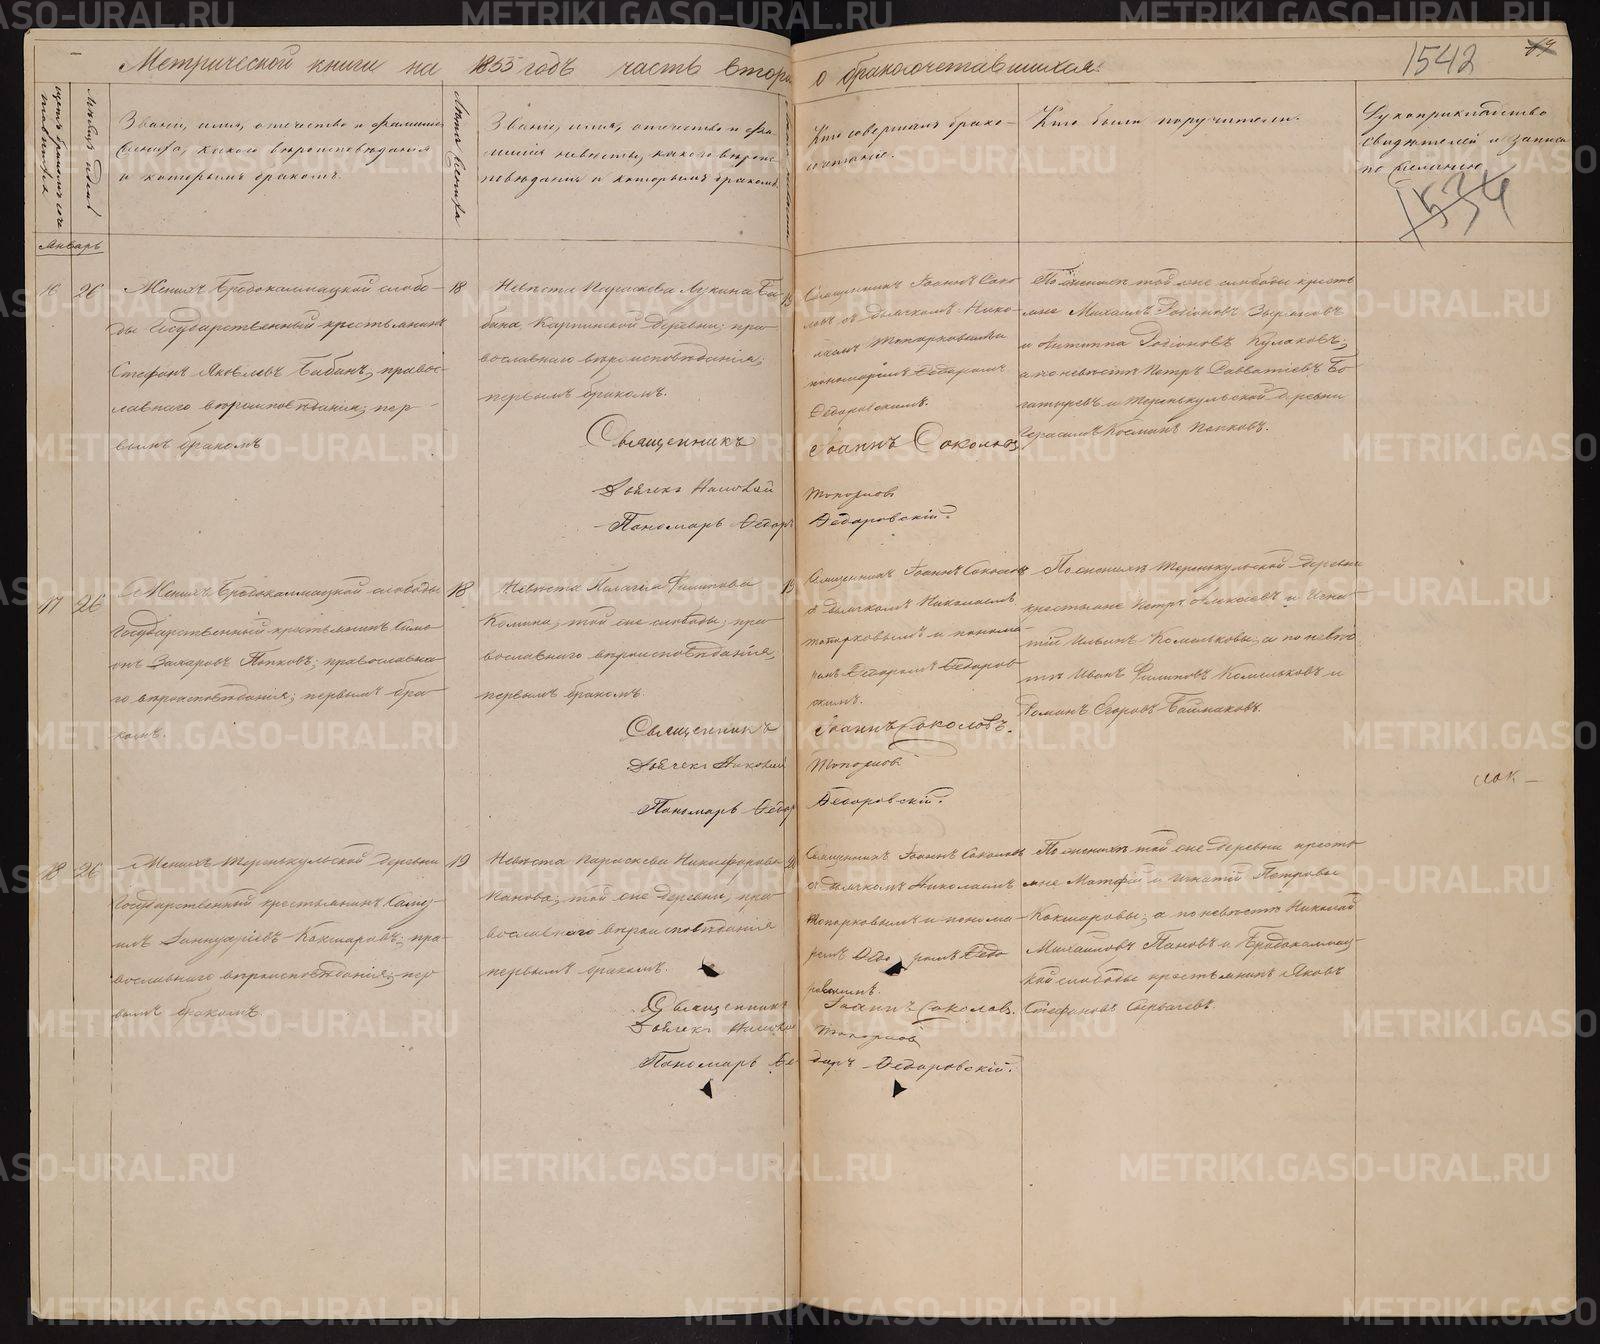 Метрической книги на 1855 годъ часть втора о бракосочетавшихся.
1542
Звание, имя, отечество и фамилия
жениха, какого вероисповедания
и которымъ бракомъ.
Лета жениха
Звание, имя, отечество и фа-
милия невесты, какого вероис-
поведания и которымъ бракомъ.
Кто совершалъ брако-
сочетание.
Кто были поручители.
Рукоприкладство
свидетелей записи
по желанию
1534
Январь
16 26
Женихъ Бродокалмацкой слобо-
ды Государственный крестьянинъ
Стефанъ Яковлевъ Бабинъ, правос-
лавнаго вероисповедания; пер-
вымъ бракомъ
18
Невеста Параскева Лукина Ба-
бина, Карпинской деревни; пра-
вославнаго вероисповедания;
первымъ бракомъ.
Священникъ
Дьячекъ Николай
Пономарь Федоръ
Священникъ Іоаннъ Соко-
ловъ съ дьячкомъ Нико-
лаемъ Топорковымъ и
пономаремъ Федоромъ
Федоровскимъ.
Іоаннъ Соколовъ
Топорковъ
Федоровскій.
По женихе той же слободы кресть-
яне Михаилъ Родіоновъ Зыряновъ
и Антиппа Родіоновъ Кулаковъ,
а по невесте Петръ Савватіевъ Бо-
гатыревъ и Теренькульской деревни
Герасимъ Косминъ Попковъ.
17 26
Женихъ Бродокалмацкой слободы
Государственный крестьянинъ Симе-
онъ Захаровъ Попковъ; православна-
го вероисповедания; первымъ бра-
комъ.
18
Невеста Пелагія Филипова
Комина, той же слободы, пра-
вославнаго вероисповедания;
первымъ бракомъ.
Священникъ
Дьячекъ Николай
Пономарь Федоръ
Священникъ Іоаннъ Соколовъ
съ дьячкомъ Николаемъ
Топорковымъ и понома-
ремъ Федоромъ Федоровс-
кимъ.
Іоаннъ Соколовъ.
Топорковъ
Федоровскій.
По женихе Теренькульской деревни
крестьяне Петръ и Игна-
тій Ильинъ а по невес-
те Иванъ Филиповъ и
Романъ Егоровъ Баймаковъ.
18 26
Женихъ Теренькульской деревни
Государственный крестьянинъ
Іаннуаріевъ Кокшаровъ; пра-
вославнаго вероисповедания; пер-
вымъ бракомъ.
19
Невеста Параскева Никифорова
Панова, той же деревни, пра-
вославнаго вероисповедания
первымъ бракомъ.
Священникъ
Дьячекъ Николай
Пономарь Фе
Священникъ Іоаннъ Соколовъ
съ дьячкомъ Николаемъ
Топорковымъ и понома-
ремъ Федоромъ Федо-
ровскимъ.
Іоаннъ Соколовъ.
Топорковъ
доръ Федоровскій.
По женихе той же деревни кресть-
яне Матфей и Игнатій Петровы
Кокшаровы; а по невесте Николай
Михаиловъ Пановъ и Бродокалмац-
кой слободы крестьянинъ Яковъ
Стефановъ
METRIKI.GASO-URAL.RU